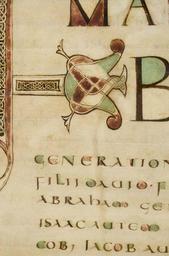 MA
B
GENERATION
FILII DAUID · F
ABRAHAM GE
ISAAC AUTEM
COB; IACOB AU